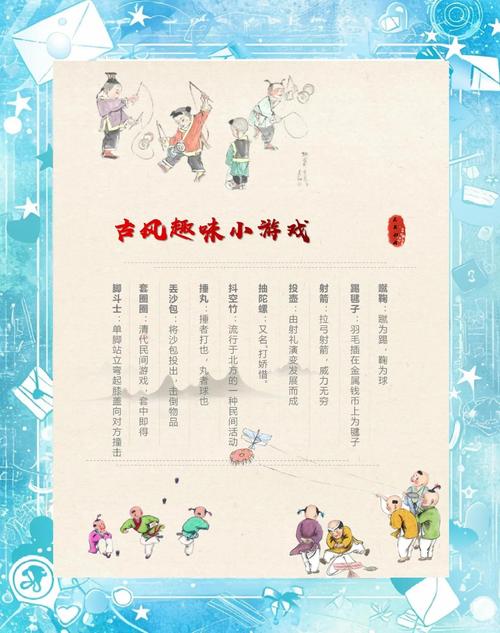 古风趣味小游戏
蹴鞠：蹴为踢，鞠为球
踢毽子：羽毛插在金属钱币上为毽子
射箭：拉弓射箭，威力无穷
投壶：由射礼演变发展而成
抽陀螺：又名,打娇惜。
抖空竹：流行于北方的一种民间活动
捶丸：捶者打也，丸者球也
丢沙包：将沙包投出，击倒物品
套圈圈：清代民间游戏，套中即得
脚斗士：单脚站立弯起膝盖向对方撞击